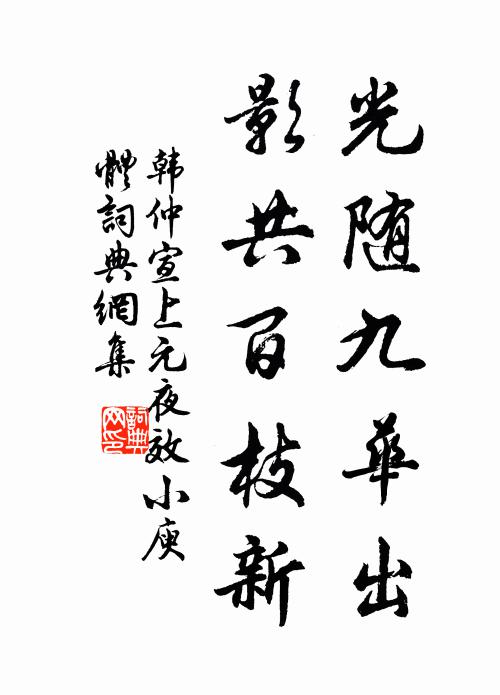 光随九華出
影共百枝新
韩仲宣上元夜效小庾
體詞典網集
詞典
网印